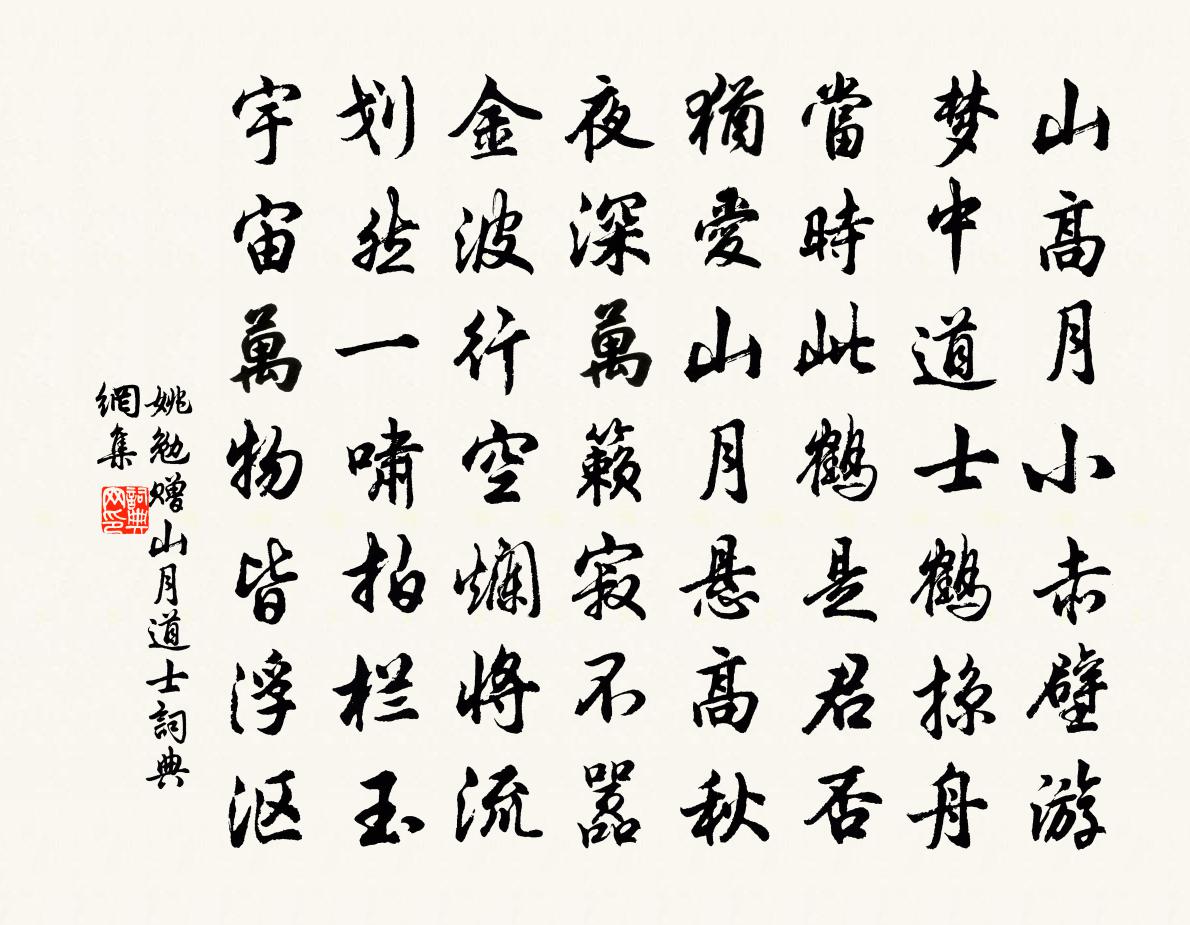 山高月小赤壁游
梦中道士鶴掠舟
當時此鶴是君否
猶愛山月悬高秋
夜深萬籟寂不嚣
金波行空斓将流
划然一啸拍栏玉
宇宙萬物皆浮沤
姚勉赠山月道士詞典
網集
詞典
网印